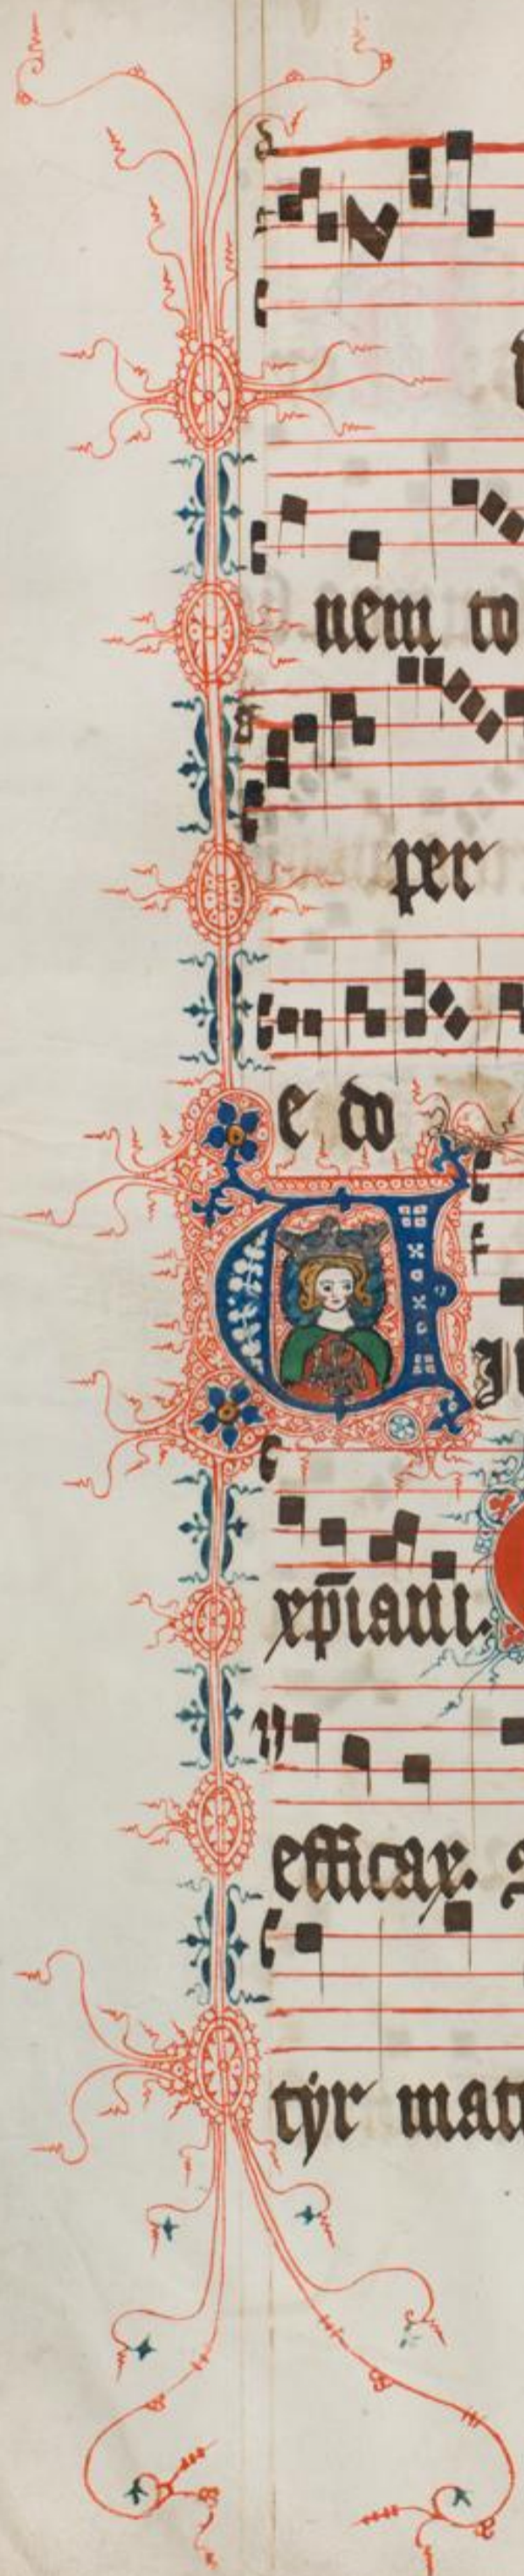 nem to
per
e do
xp̄iani.
efficax.
tyr mat